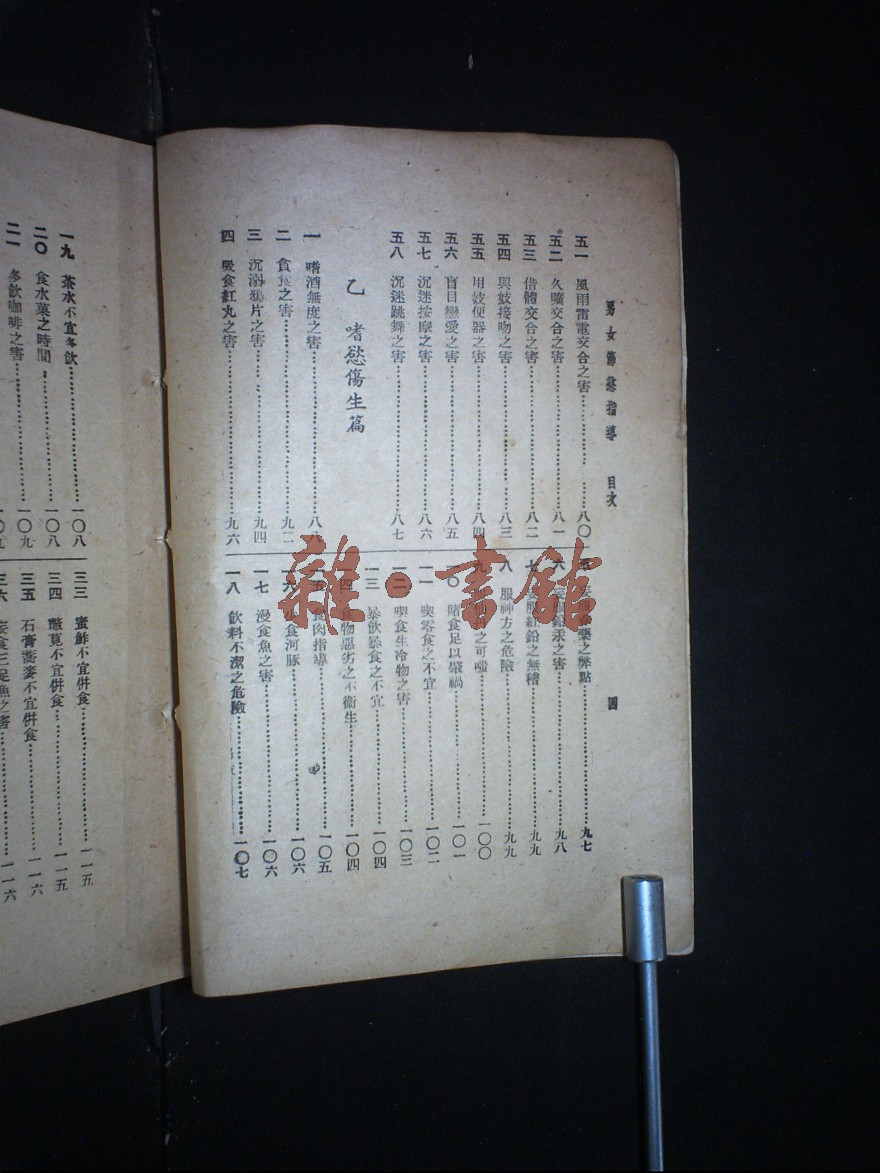 男女節慾指導 目次 四
五一 風雨雷電交合之害 八〇
五二 久曠交合之害 八一
五三 借體交合之害 八二
五四 與妓接吻之害 八三
五五 用妓便器之害 八四
五六 盲目戀愛之害 八五
五七 沉迷按摩之害 八六
五八 沉迷跳舞之害 八七
乙 嗜慾傷生篇
一 嗜酒無度之害
二 貪食之害 九二
三 沉溺鴉片之害 九四
四 吸食紅丸之害 九六
之弊點 九七
六 鉛汞之害 九八
七 服紅鉛之無稽 九九
八 服神方之危險 九九
九 之可嗤 一〇〇
一〇 賭食足以肇禍 一〇一
一一 喫零食之不宜 一〇二
一二 喫食生冷物之害 一〇三
一三 暴飲暴食之不宜 一〇四
一四 食物惡劣之不衛生 一〇四
一五 食肉指導 一〇五
一六 食河豚 一〇六
一七 漫食魚之害 一〇六
一八 飲料不潔之危險 一〇七
一九 茶水不宜多飲 一〇八
二〇 食水菓之時間 一〇八
二一 多飲咖啡之害 一〇九
三三 蜜鮓不宜併食 一一五
三四 鼈莧不宜併食 一一五
三五 石膏蕎麥不宜併食 一一六
三六 妄食三足魚之害 一一六
雜·書館